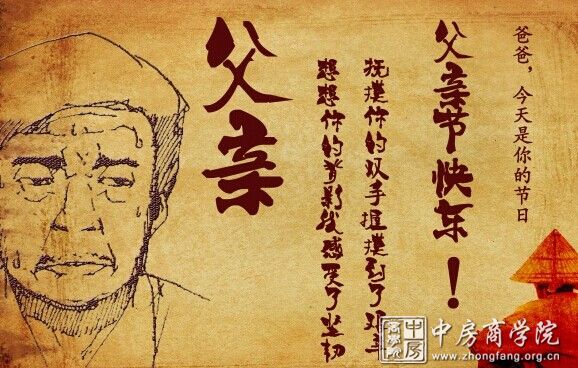 爸爸，今天是你的节日
父亲节快乐！
抚摸你的双手我摸到了艰辛
想想你的背影我感受了坚韧
父亲
中房商学院
中房商学院
www.zhongfang.org.cn